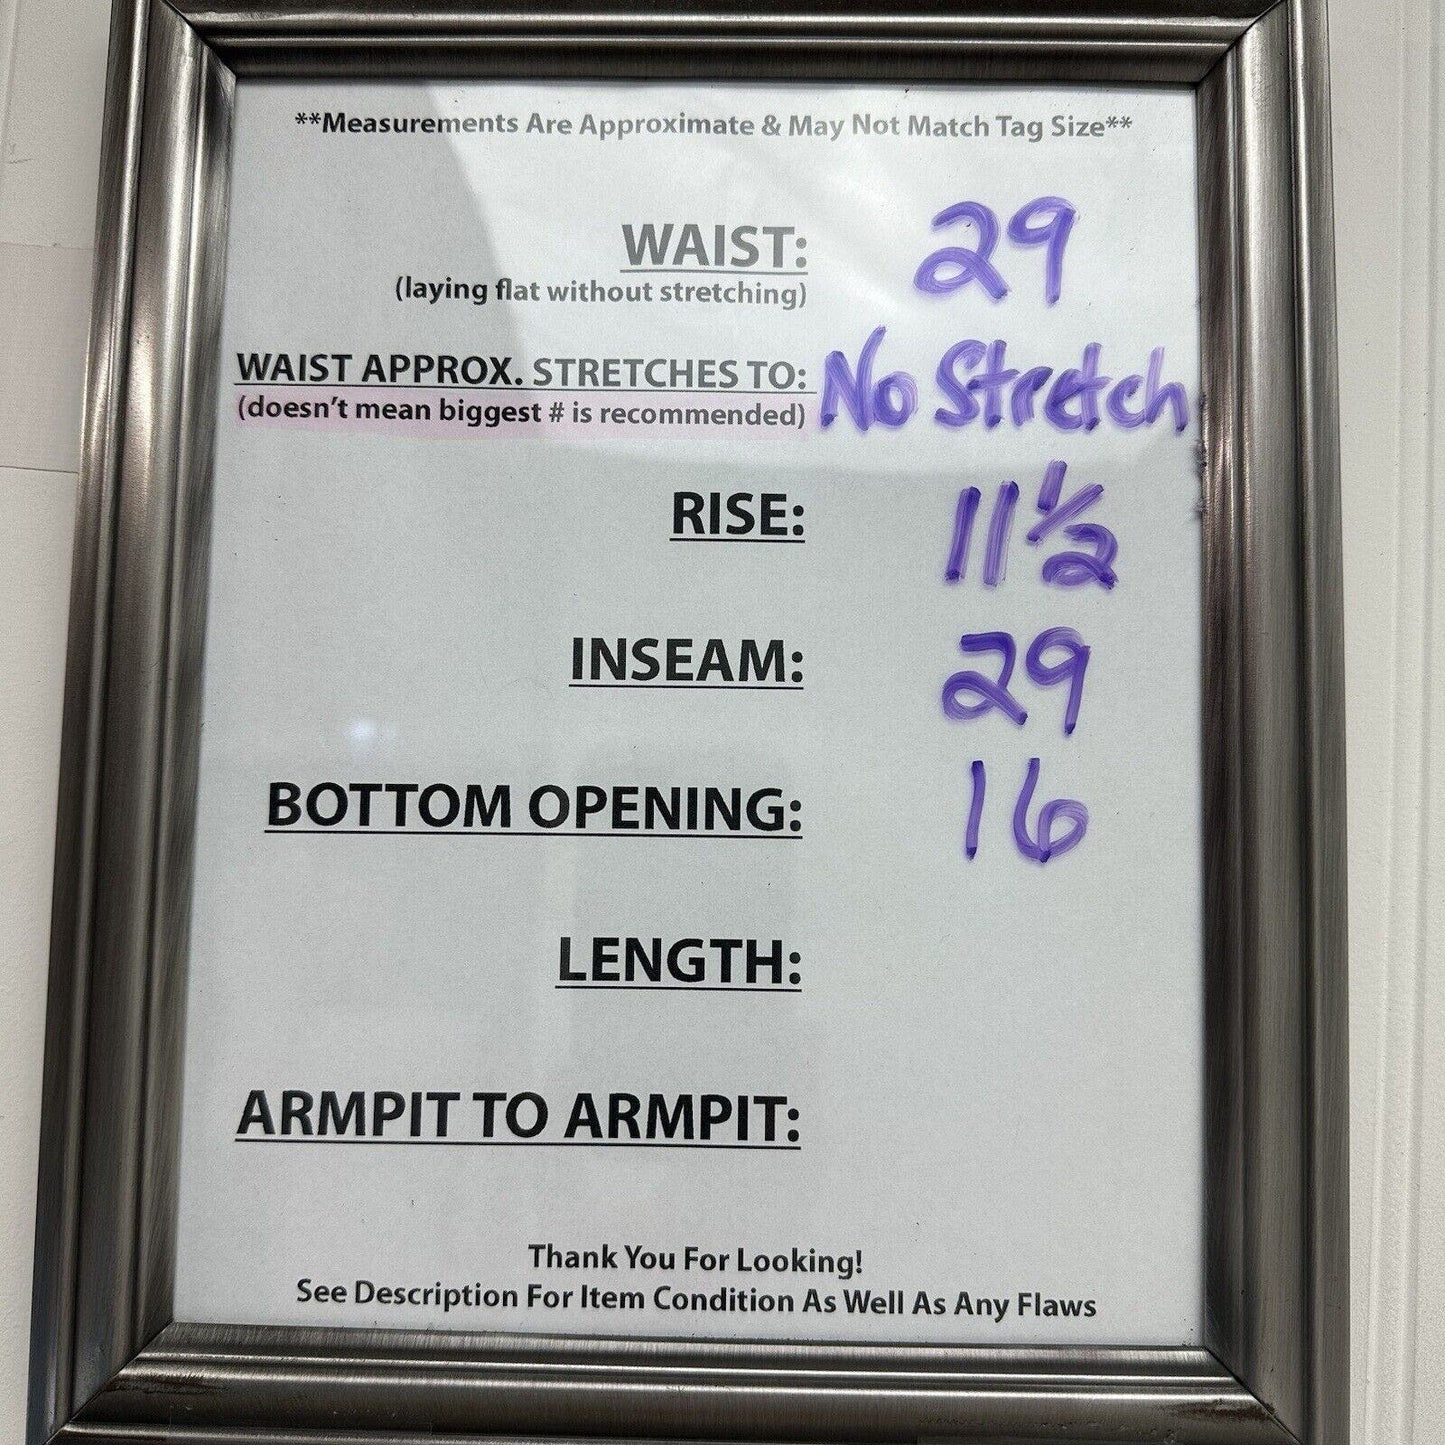 **Measurements Are Approximate & May Not Match Tag Size**
WAIST: 29
(laying flat without stretching)
WAIST APPROX. STRETCHES TO: No Stretch
(doesn't mean biggest # is recommended)
RISE: 11 1/2
INSEAM: 29
BOTTOM OPENING: 16
LENGTH:
ARMPIT TO ARMPIT:
Thank You For Looking!
See Description For Item Condition As Well As Any Flaws